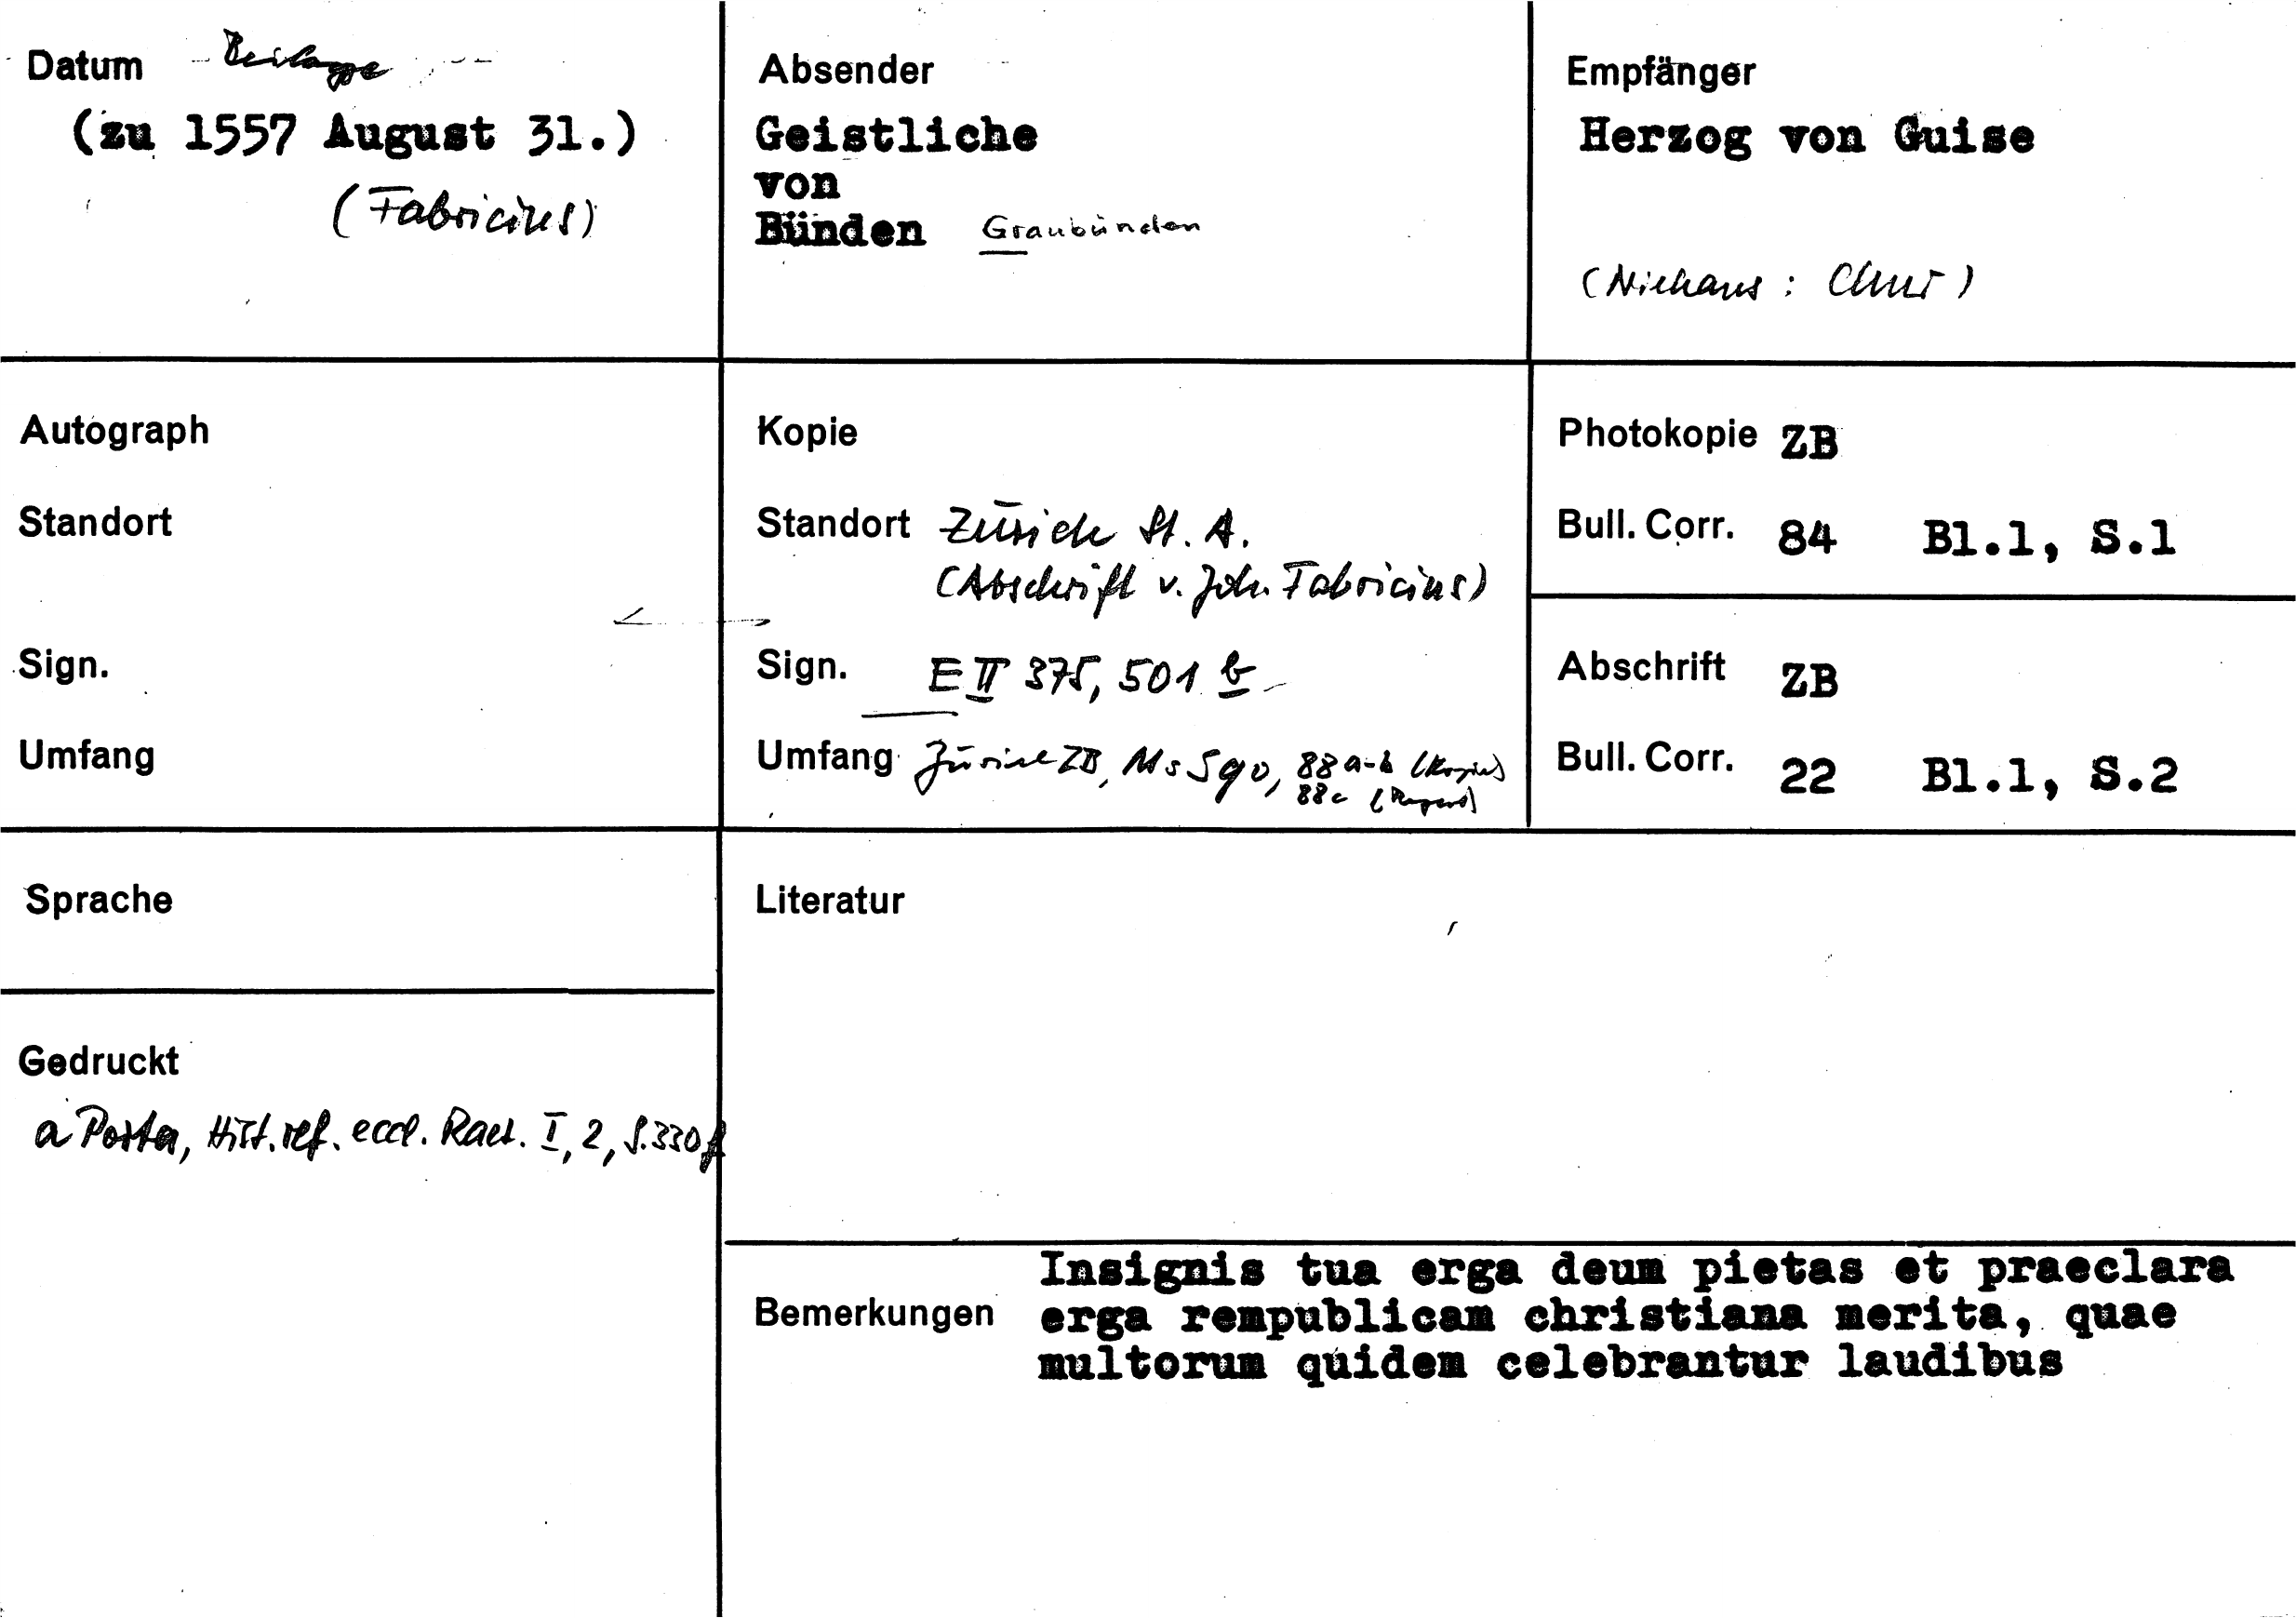 Datum Beilage
(zu 1557 August 31.)
(Fabricius)
Absender
Geistliche
von
Bünden Graubünden
Empfänger
Herzog von Guise
(Niehans: Chur)
Autograph
Standort
Sign.
Umfang
Kopie
Standort Zürich St. A.
(Abschrift v. Joh. Fabricius)
Sign. E II 375, 501 b
Umfang Zürich ZB, Ms S 90, 88 a-b (Kopie)
88c (Regest)
Photokopie ZB
Bull. Corr. 84 Bl.1, S.1
Abschrift ZB
Bull. Corr. 22 Bl.1, S.2
Sprache
Gedruckt
a Porta, Hist. ref. eccl. Raet. I, 2, S. 330 f
Literatur
Bemerkungen
Insignis tua erga deum pietas et praeclara
erga rempublicam christiana merita, quae
multorum quidem celebrantur laudibus